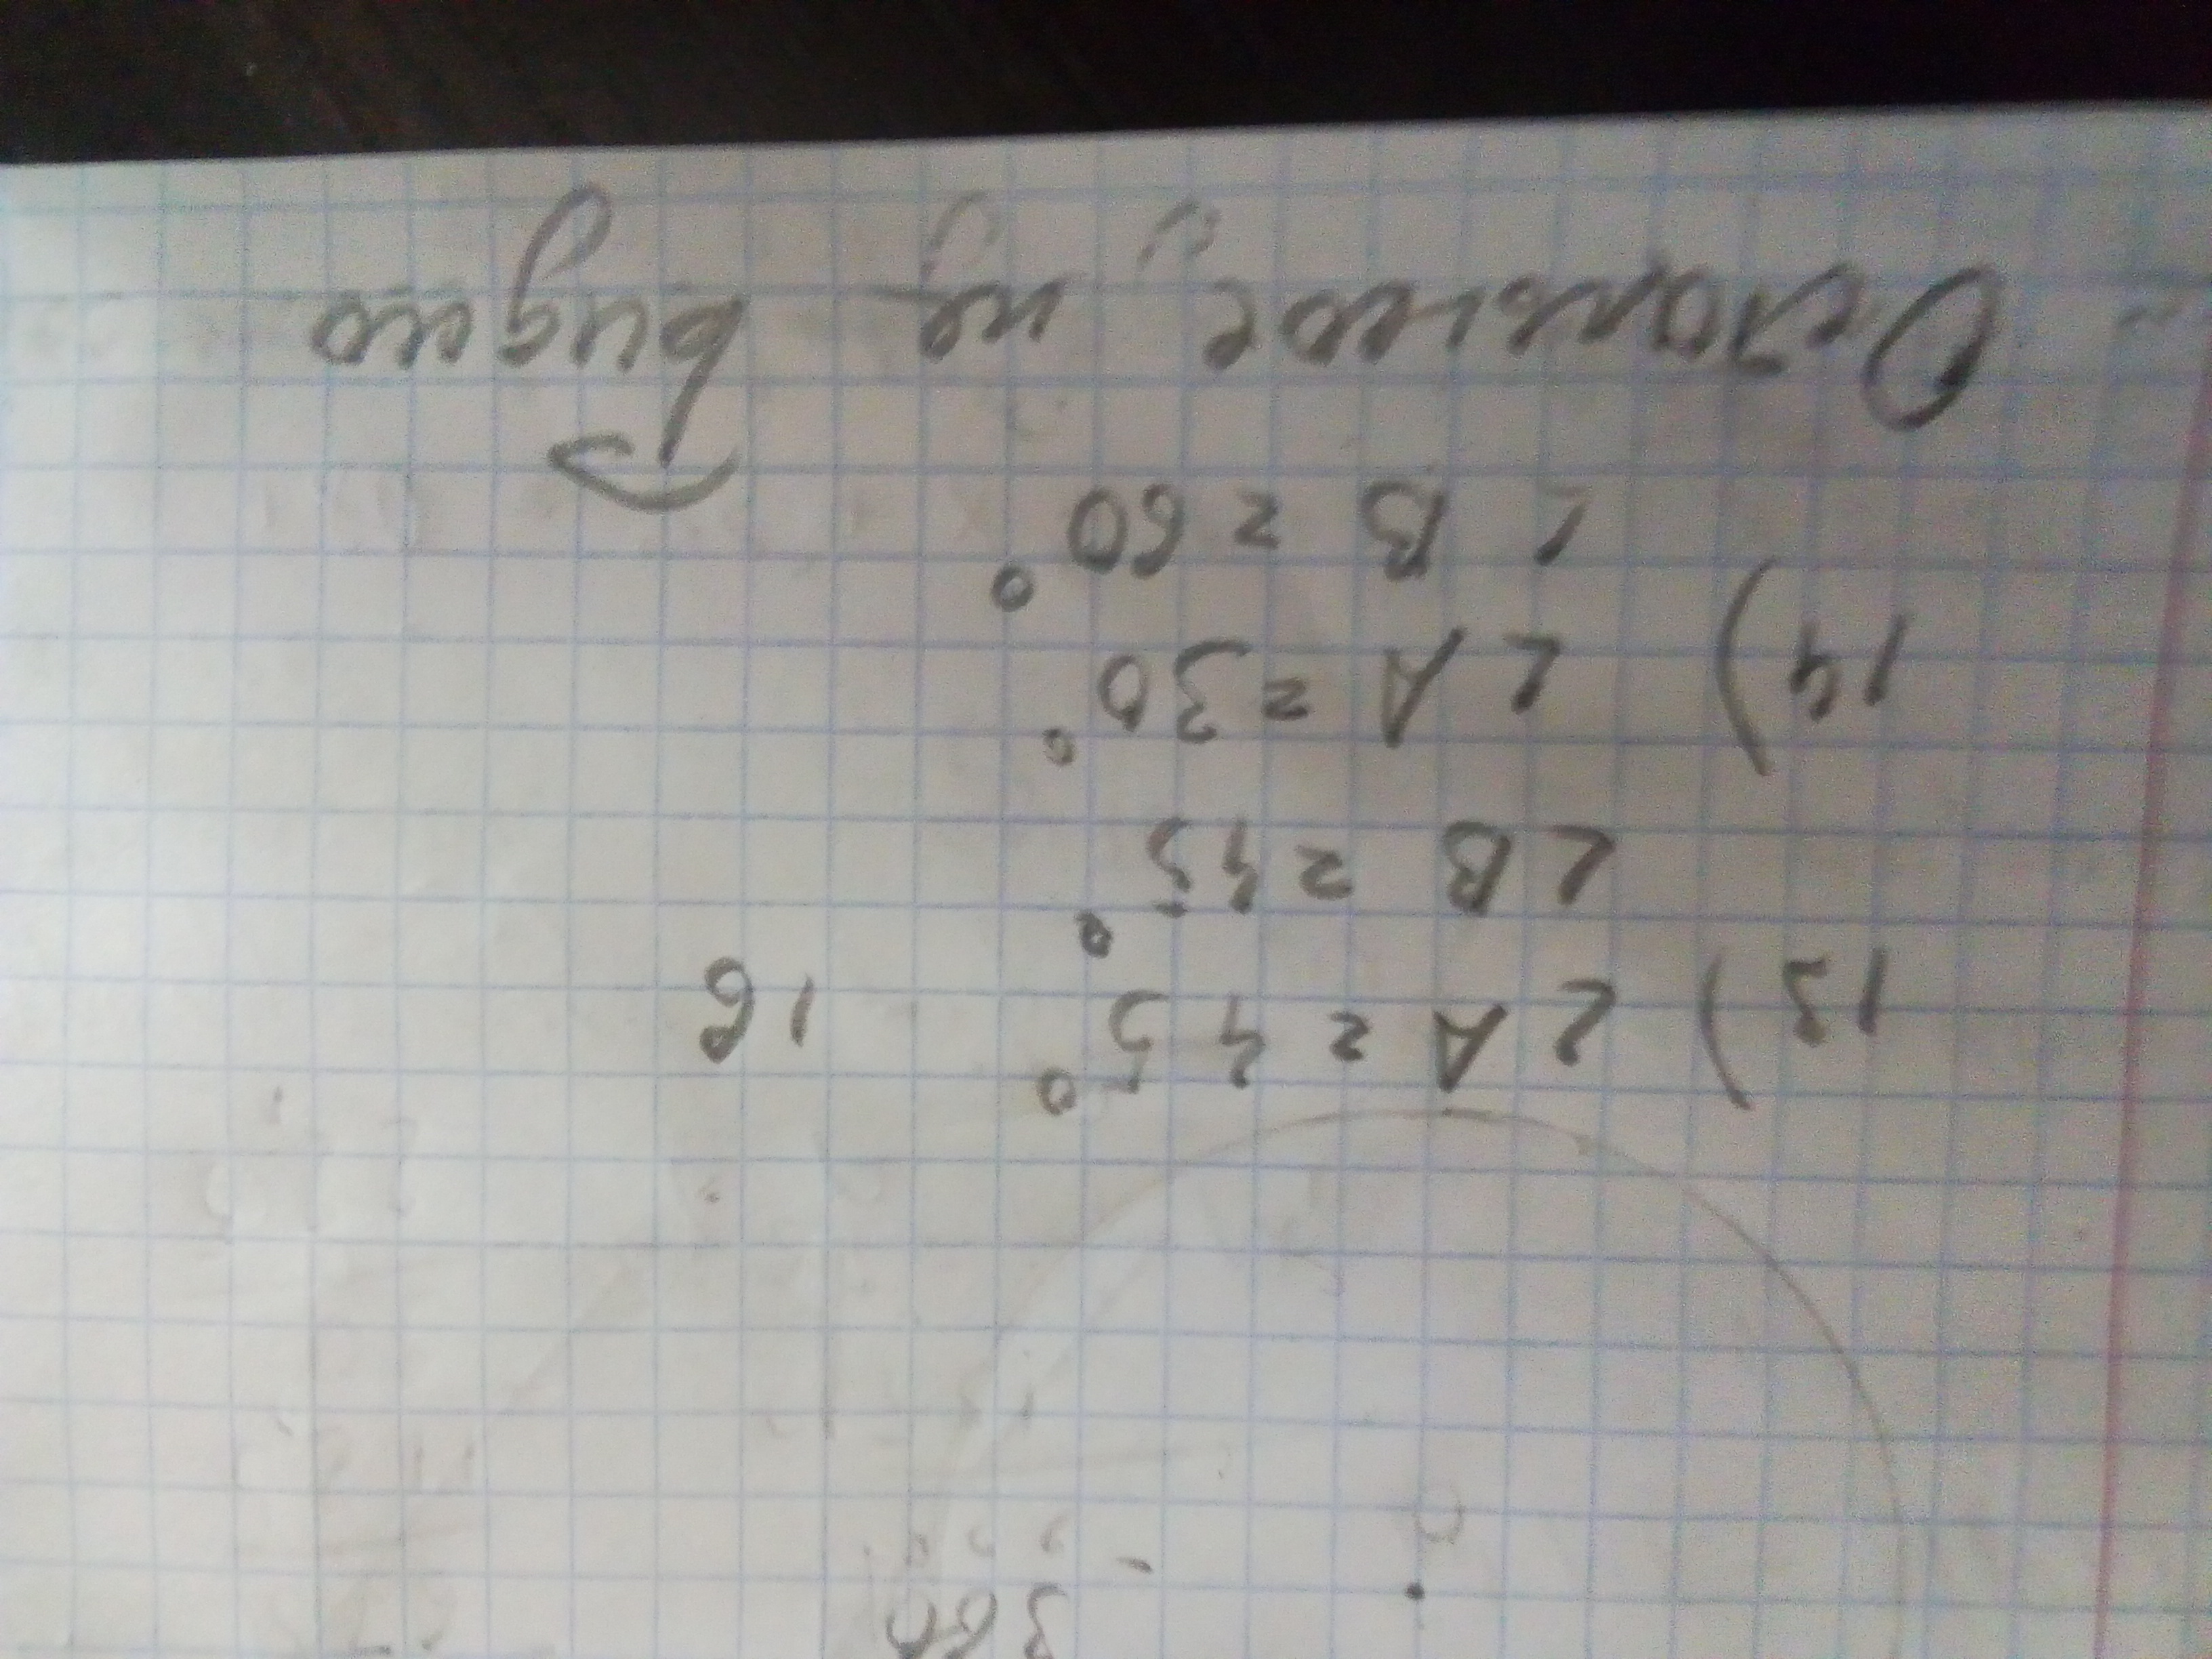 - 360
13) ∠A = 45° 16
∠B = 45°
14) ∠A = 30°
∠B = 60°
Остальное не видно